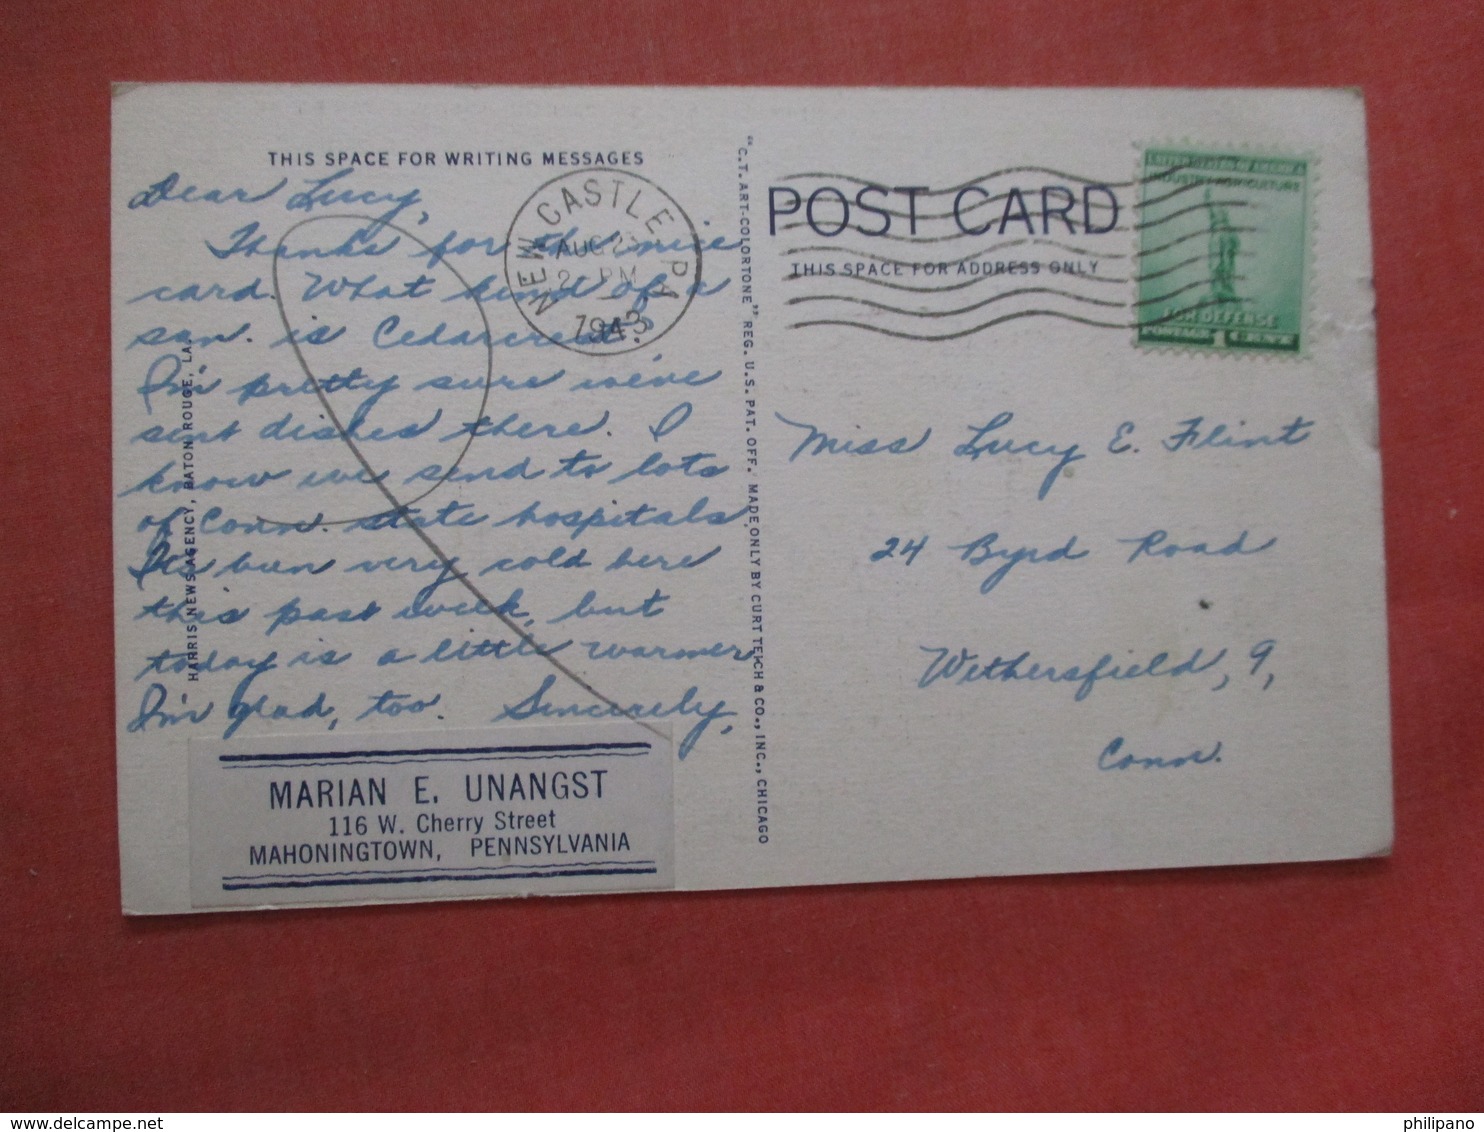 THIS SPACE FOR WRITING MESSAGES
Dear Lucy,
Thanks for the nice
card. What kind of a
san. is Cedarcrest?
I'm pretty sure we've
sent dishes there. I
know we send to lots
of Conn. state hospitals.
It's been very cold here
this past week, but
today is a little warmer.
I'm glad, too. Sincerely,
MARIAN E. UNANGST
116 W. Cherry Street
MAHONINGTOWN, PENNSYLVANIA
HARRIS NEWS AGENCY, BATON ROUGE, LA.
NEW CASTLE PA
AUG 2
2 PM
1943
"C.T. ART-COLORTONE" REG. U.S. PAT. OFF. MADE ONLY BY CURT TEICH & CO., INC., CHICAGO
POST CARD
THIS SPACE FOR ADDRESS ONLY
UNITED STATES OF AMERICA
INDUSTRY AGRICULTURE
FOR DEFENSE
POSTAGE 1 CENT
Miss Lucy E. Flint
24 Byrd Road
Wethersfield, 9,
Conn.
www.delcampe.net
philipano